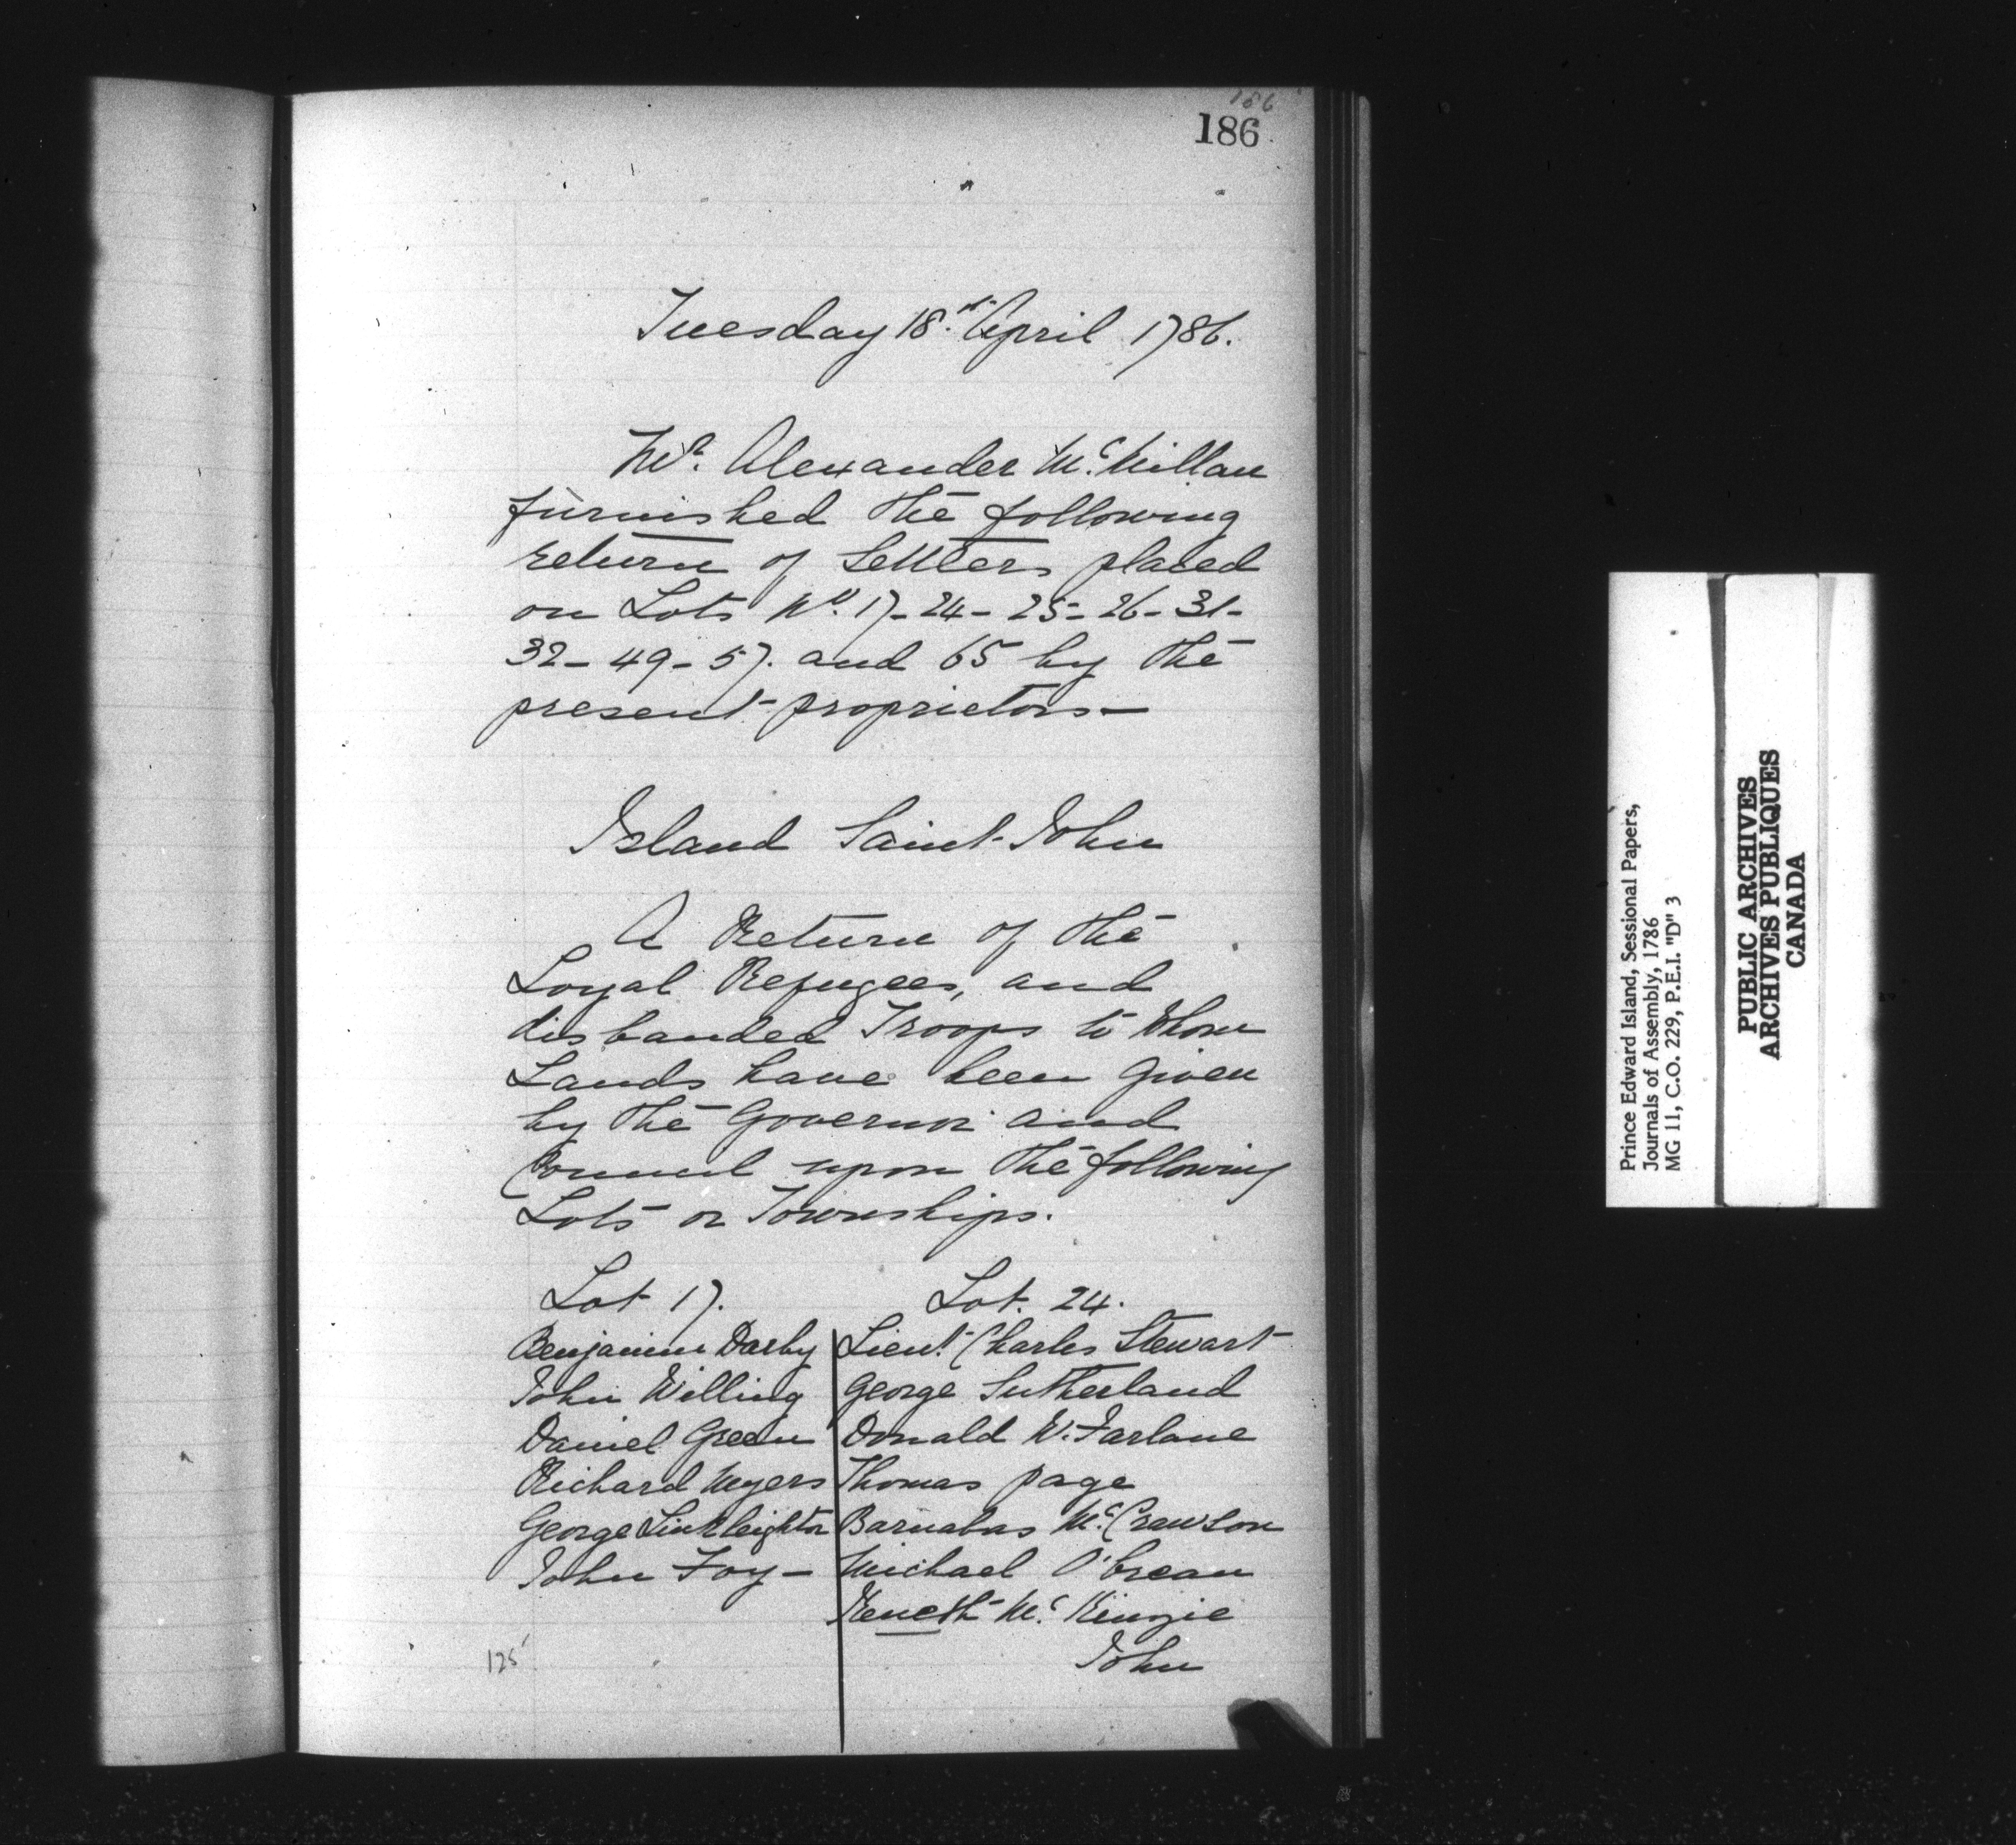 186
186
Tuesday 18th April 1786.
Mr. Alexander Mc. Millan
furnished the following
return of Settlers placed
on Lots No. 17-24-25-26-31-
32-49-57. and 65 by the
present proprietors—
Island Saint John
A Return of the
Loyal Refugees, and
disbanded Troops to Whom
Lands have been Given
by the Governor and
Council upon the following
Lots or Townships.
Lot 17.
Benjamin Darby
John Willing
Daniel Green
Richard Myers
George Linkleighton
John Foy—
Lot. 24.
Lieut. Charles Stewart
George Sutherland
Donald Mc.Farlane
Thomas Page
Barnabas Mc. Crawson
Michael O'Brean
Keneth Mc. Kinzie
John
125
Prince Edward Island, Sessional Papers,
Journals of Assembly, 1786
MG 11, C.O. 229, P.E.I. "D" 3
PUBLIC ARCHIVES
ARCHIVES PUBLIQUES
CANADA